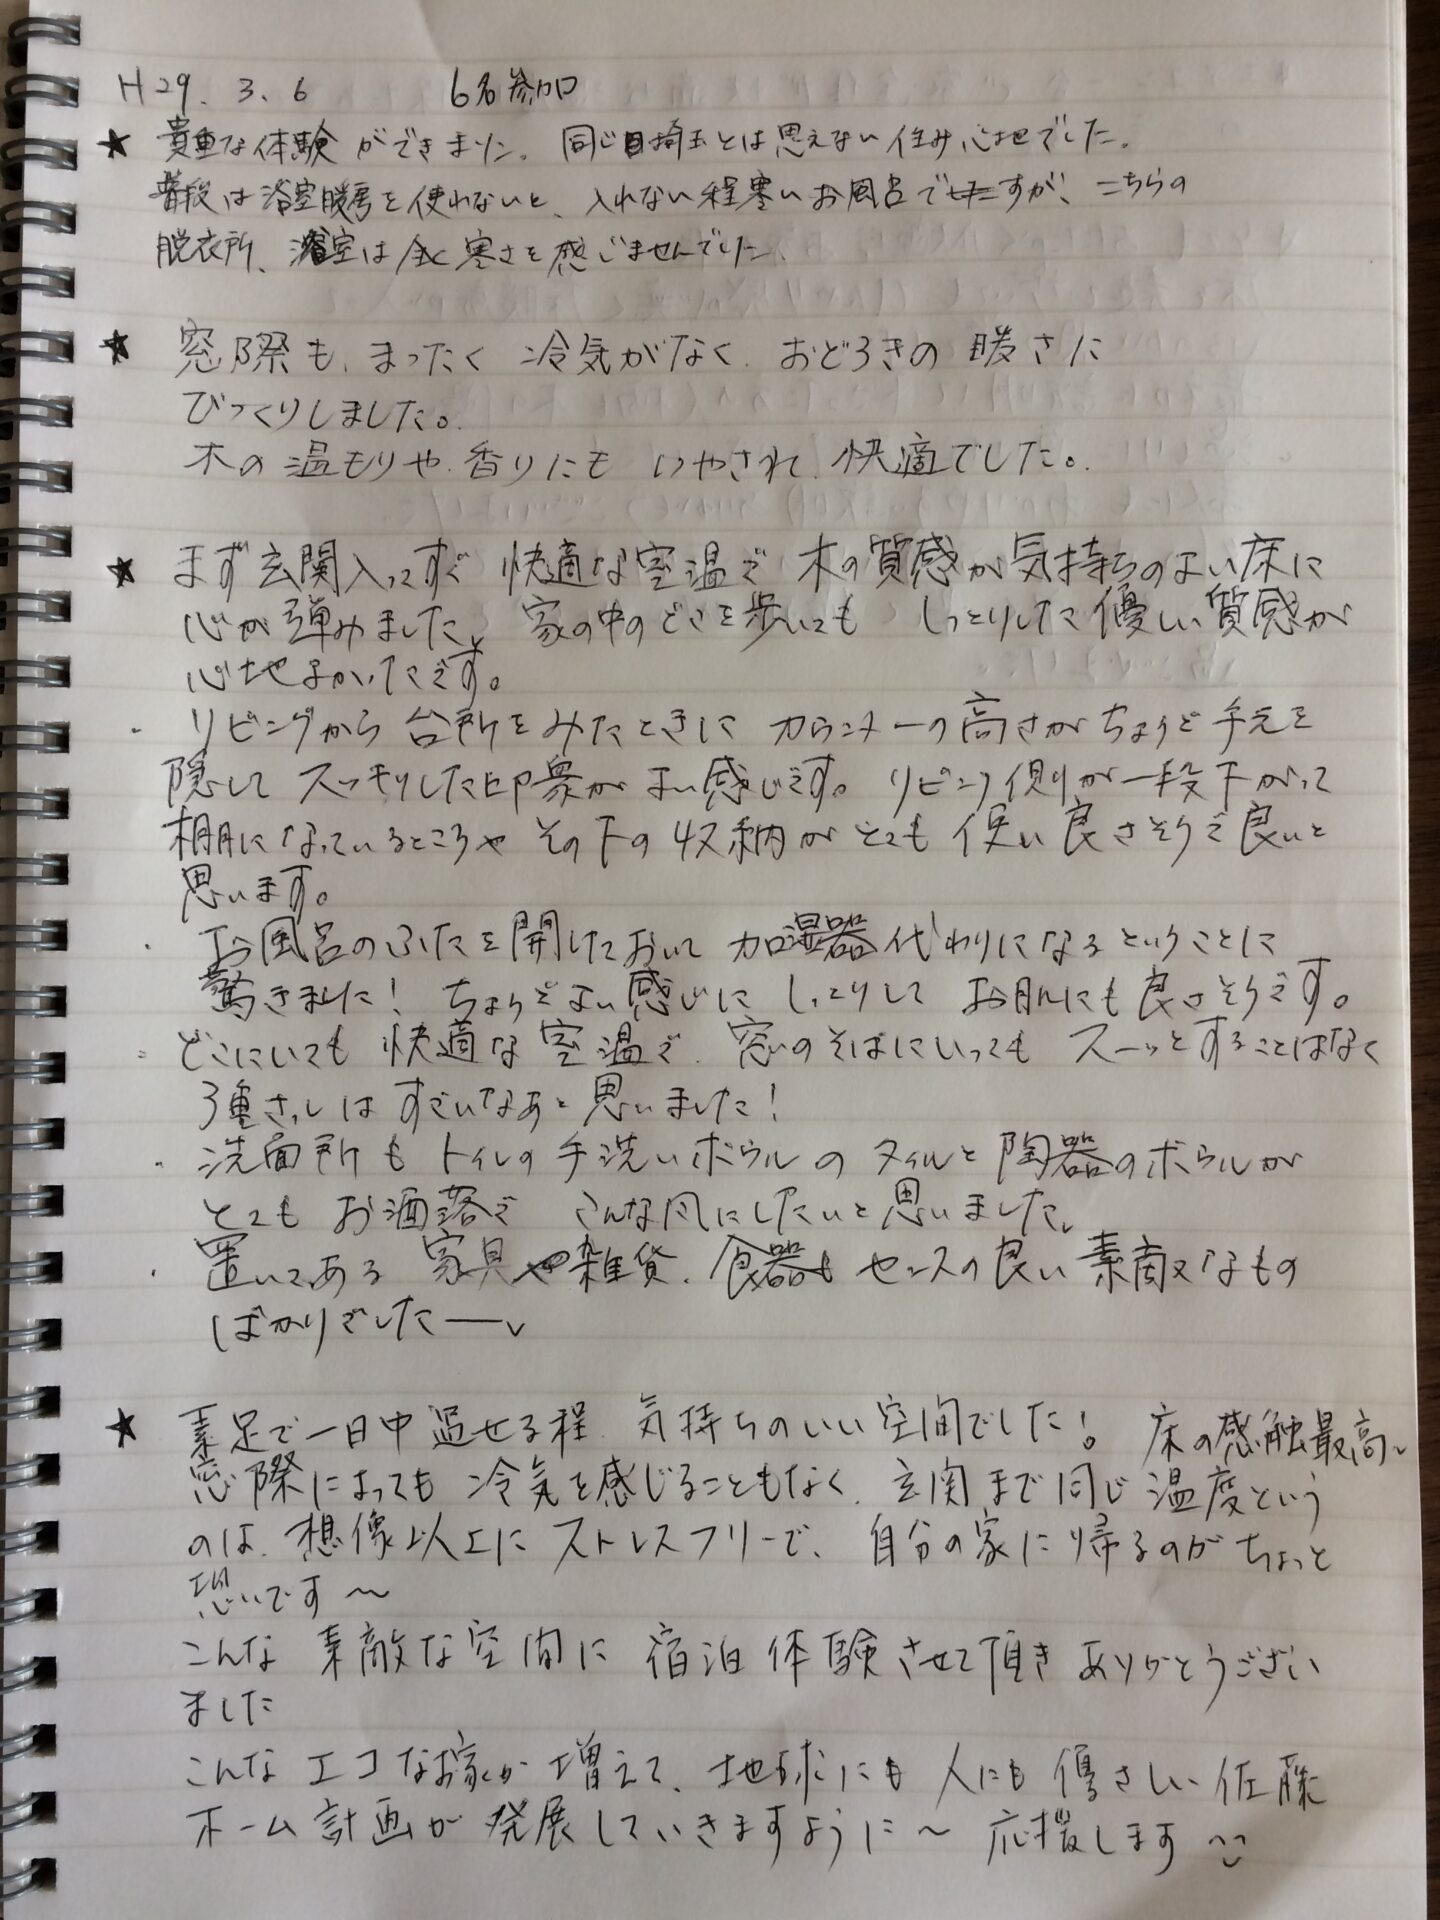 H29.3.6 6名参加
★ 貴重な体験ができました。同じ埼玉とは思えない住み心地でした。
普段は浴室暖房を使わないと、入れない程寒いお風呂ですが、こちらの
脱衣所、浴室は全く寒さを感じませんでした。
★ 窓際も、まったく冷気がなく、おどろきの暖さに
びっくりしました。
木の温もりや香りにもいやされ、快適でした。
★ まず玄関入ってすぐ快適な室温で木の質感が気持ちのよい床に
心が弾みました。家の中のどこを歩いてもしっとりした優しい質感が
心地よかったです。
・リビングから台所をみたときにカウンターの高さがちょうど手元を
隠してスッキリした印象がよい感じです。リビング側が一段下がって
棚になっているところやその下の収納がとても使い良さそうで良いと
思います。
・お風呂のふたを開けておいて加湿器代わりになるということに
驚きました!ちょうどよい感じにしっとりしてお肌にも良さそうです。
・どこにいても快適な室温で、窓のそばにいってもスーッとすることはなく
3重サッシはすごいなあと思いました!
・洗面所もトイレの手洗いボウルのタイルと陶器のボウルが
とてもお洒落でこんな風にしたいと思いました。
・置いてある家具や雑貨、食器もセンスの良い素敵なもの
ばかりでしたー。
★ 素足で一日中過せる程、気持ちのいい空間でした!床の感触最高。
窓際によっても冷気を感じることもなく、玄関まで同じ温度という
のは、想像以上にストレスフリーで、自分の家に帰るのがちょっと
恐いです〜
こんな素敵な空間に宿泊体験させて頂きありがとうござい
ました
こんなエコなお家が増えて、地球にも人にも優さしい佐藤
ホーム計画が発展していきますように〜応援します